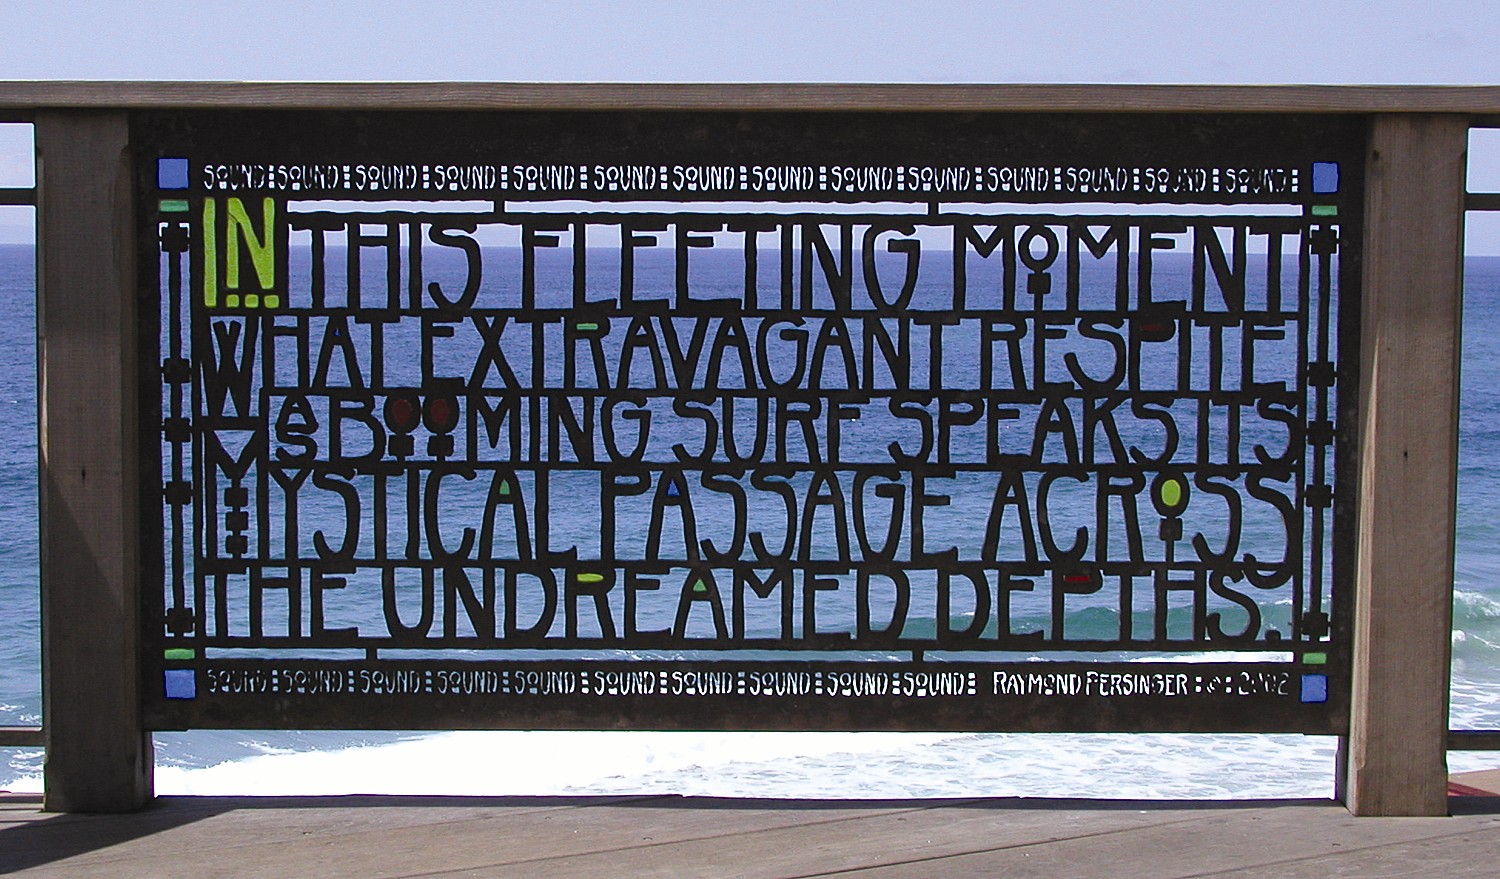 SOUND : SOUND : SOUND : SOUND : SOUND : SOUND : SOUND : SOUND : SOUND : SOUND : SOUND : SOUND : SOUND : SOUND :
IN THIS FLEETING MOMENT
WHAT EXTRAVAGANT RESPITE
AS BOOMING SURF SPEAKS ITS
MYSTICAL PASSAGE ACROSS
THE UNDREAMED DEPTHS.
SOUND : SOUND : SOUND : SOUND : SOUND : SOUND : SOUND : SOUND : SOUND : SOUND : RAYMOND PERSINGER : © : 2002